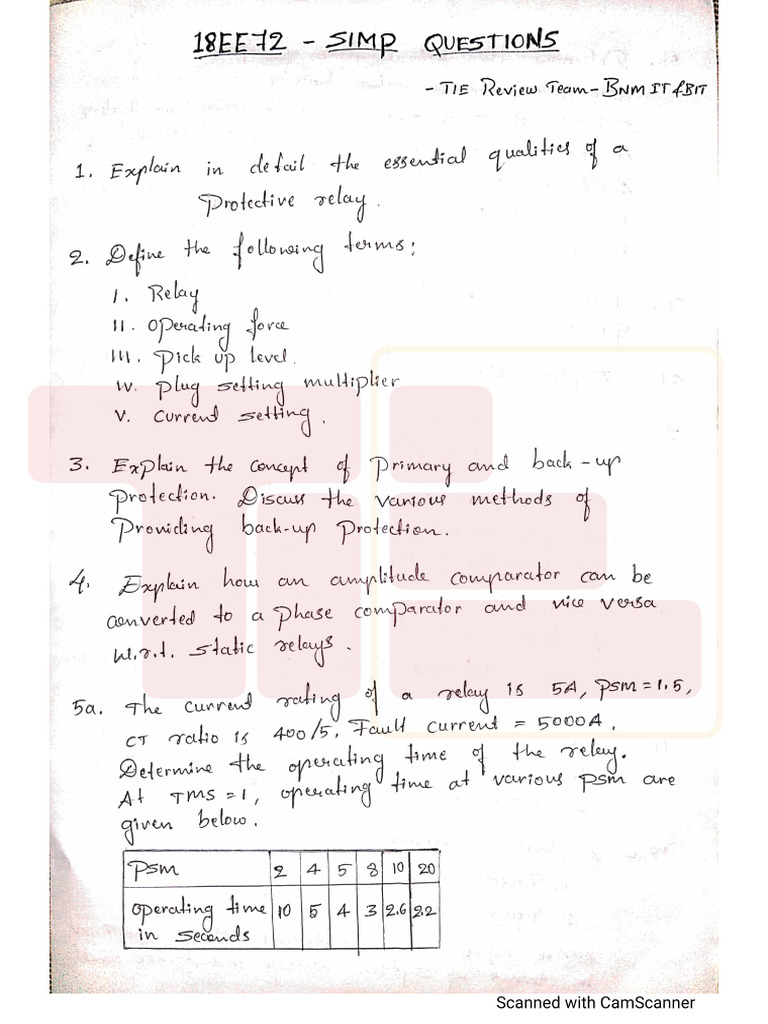 18EE72 - SIMP QUESTIONS
- TIE Review Team - BNMIT & BIT
1. Explain in detail the essential qualities of a
Protective relay.
2. Define the following terms:
I. Relay
II. Operating force
III. Pick up level.
IV. Plug setting multiplier
V. Current setting.
3. Explain the concept of Primary and back-up
Protection. Discuss the various methods of
Providing back-up Protection.
4. Explain how an amplitude comparator can be
converted to a Phase comparator and vice versa
w.r.t. static relays.
5a. The current rating of a relay is 5A, PSM = 1.5,
CT ratio is 400/5, Fault current = 5000A.
Determine the operating time of the relay.
At TMS = 1, operating time at various PSM are
given below.
PSM 2 4 5 8 10 20
Operating time 10 5 4 3 2.6 2.2
in seconds
Scanned with CamScanner